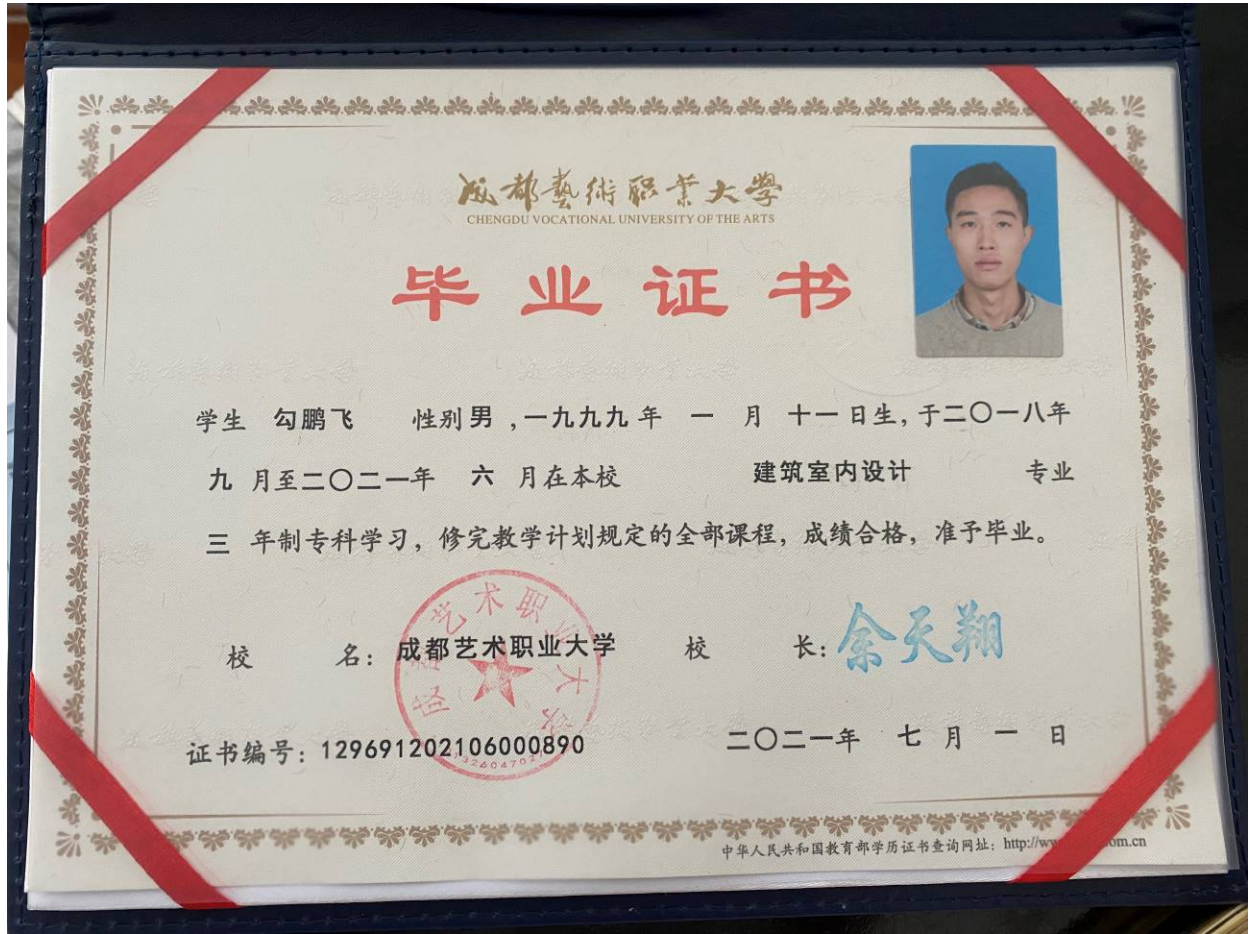 成都藝術职業大學
CHENGDU VOCATIONAL UNIVERSITY OF THE ARTS
毕业证书
学生 勾鹏飞 性别 男 ,一九九九 年 一 月 十一 日生, 于二〇一八年
九 月至二〇二一年 六 月在本校 建筑室内设计 专业
三 年制专科学习, 修完教学计划规定的全部课程, 成绩合格, 准予毕业。
校 名: 成都艺术职业大学 校 长: 余天翔
证书编号: 129691202106000890 二〇二一年 七 月 一 日
中华人民共和国教育部学历证书查询网址: http://ww om.cn